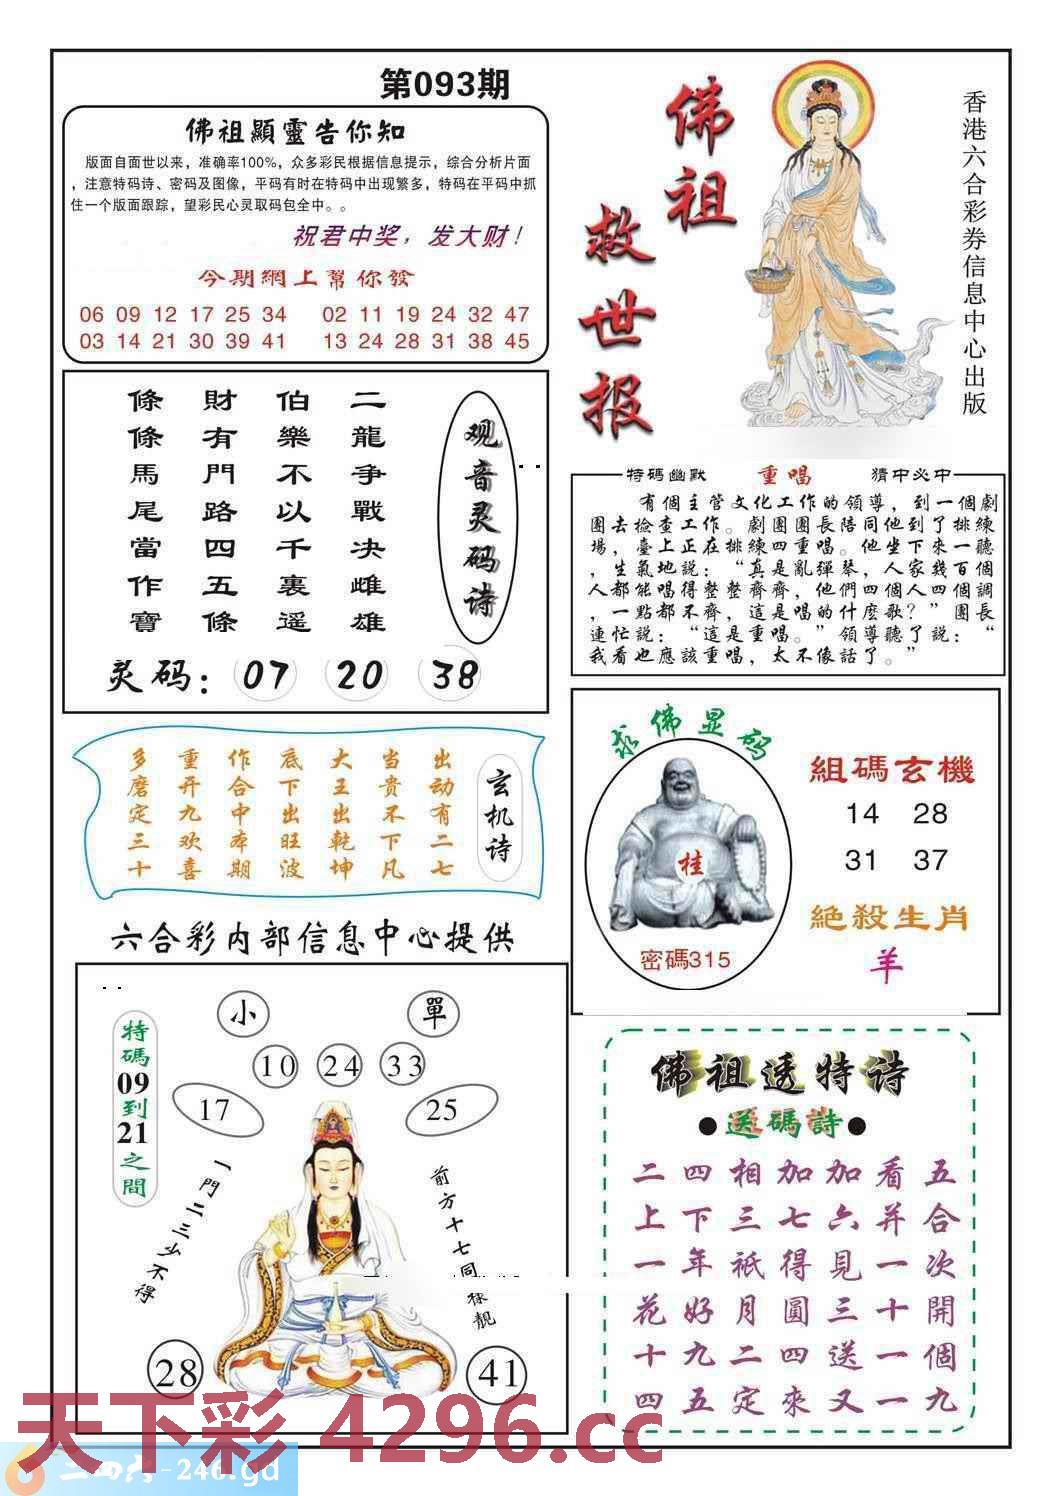 第093期
佛祖顯靈告你知
版面自面世以来，准确率100%，众多彩民根据信息提示，综合分析片面
，注意特码诗、密码及图像，平码有时在特码中出现繁多，特码在平码中抓
住一个版面跟踪，望彩民心灵取码包全中。。
祝君中奖，发大财！
今期網上幫你發
06 09 12 17 25 34 02 11 19 24 32 47
03 14 21 30 39 41 13 24 28 31 38 45
佛祖
救世报
香港六合彩券信息中心出版
观音灵码诗
二龍争戰决雌雄
伯樂不以千裏遥
財有門路四五條
條條馬尾當作寶
灵码：07 20 38
特碼幽默 重唱 猜中必中
有個主管文化工作的領導，到一個劇
團去檢查工作。劇團團長陪同他到了排練
場，臺上正在排練四重唱。他坐下來一聽
，生氣地説：“真是亂彈琴，人家幾百個
人都能唱得整整齊齊，他們四個人四個調
，一點都不齊，這是唱的什麼歌？”團長
連忙説：“這是重唱。”領導聽了説：“
我看也應該重唱，太不像話了。”
玄机诗
出动有二七
当贵不下凡
大王出乾坤
底下出旺波
作合中本期
重开九欢喜
多磨定三十
求佛显码
桂
密碼315
組碼玄機
14 28
31 37
絕殺生肖
羊
六合彩内部信息中心提供
特碼09到21之間
小 單
10 24 33
17 25
一門二三少不得
前方十七同樣靚
28 41
佛祖透特诗
●送碼詩●
五合次開個九
看并一十一一
加六見三送又
加七得圓四來
相三祇月二定
四下年好九五
二上一花十四
天下彩 4296.cc
二四六-246.gd